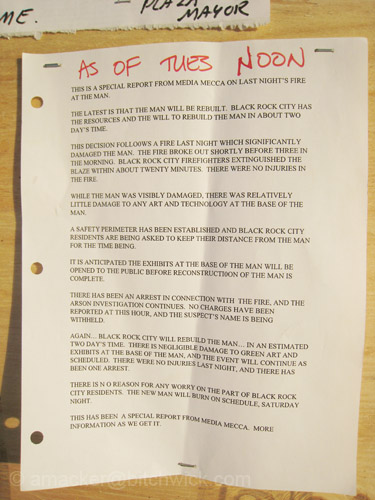 ME.
— PLAZA
MAYOR
AS OF TUES NOON
THIS IS A SPECIAL REPORT FROM MEDIA MECCA ON LAST NIGHT'S FIRE
AT THE MAN.
THE LATEST IS THAT THE MAN WILL BE REBUILT. BLACK ROCK CITY HAS
THE RESOURCES AND THE WILL TO REBUILD THE MAN IN ABOUT TWO
DAY'S TIME.
THIS DECISION FOLLOOWS A FIRE LAST NIGHT WHICH SIGNIFICANTLY
DAMAGED THE MAN. THE FIRE BROKE OUT SHORTLY BEFORE THREE IN
THE MORNING. BLACK ROCK CITY FIREFIGHTERS EXTINGUISHED THE
BLAZE WITHIN ABOUT TWENTY MINUTES. THERE WERE NO INJURIES IN
THE FIRE.
WHILE THE MAN WAS VISIBLY DAMAGED, THERE WAS RELATIVELY
LITTLE DAMAGE TO ANY ART AND TECHNOLOGY AT THE BASE OF THE
MAN.
A SAFETY PERIMETER HAS BEEN ESTABLISHED AND BLACK ROCK CITY
RESIDENTS ARE BEING ASKED TO KEEP THEIR DISTANCE FROM THE MAN
FOR THE TIME BEING.
IT IS ANTICIPATED THE EXHIBITS AT THE BASE OF THE MAN WILL BE
OPENED TO THE PUBLIC BEFORE RECONSTRUCTIOON OF THE MAN IS
COMPLETE.
THERE HAS BEEN AN ARREST IN CONNECTION WITH THE FIRE, AND THE
ARSON INVESTIGATION CONTINUES. NO CHARGES HAVE BEEN
REPORTED AT THIS HOUR, AND THE SUSPECT'S NAME IS BEING
WITHHELD.
AGAIN... BLACK ROCK CITY WILL REBUILD THE MAN... IN AN ESTIMATED
TWO DAY'S TIME. THERE IS NEGLIGIBLE DAMAGE TO GREEN ART AND
EXHIBITS AT THE BASE OF THE MAN, AND THE EVENT WILL CONTINUE AS
SCHEDULED. THERE WERE NO INJURIES LAST NIGHT, AND THERE HAS
BEEN ONE ARREST.
THERE IS N O REASON FOR ANY WORRY ON THE PART OF BLACK ROCK
CITY RESIDENTS. THE NEW MAN WILL BURN ON SCHEDULE, SATURDAY
NIGHT.
THIS HAS BEEN A SPECIAL REPORT FROM MEDIA MECCA. MORE
INFORMATION AS WE GET IT.